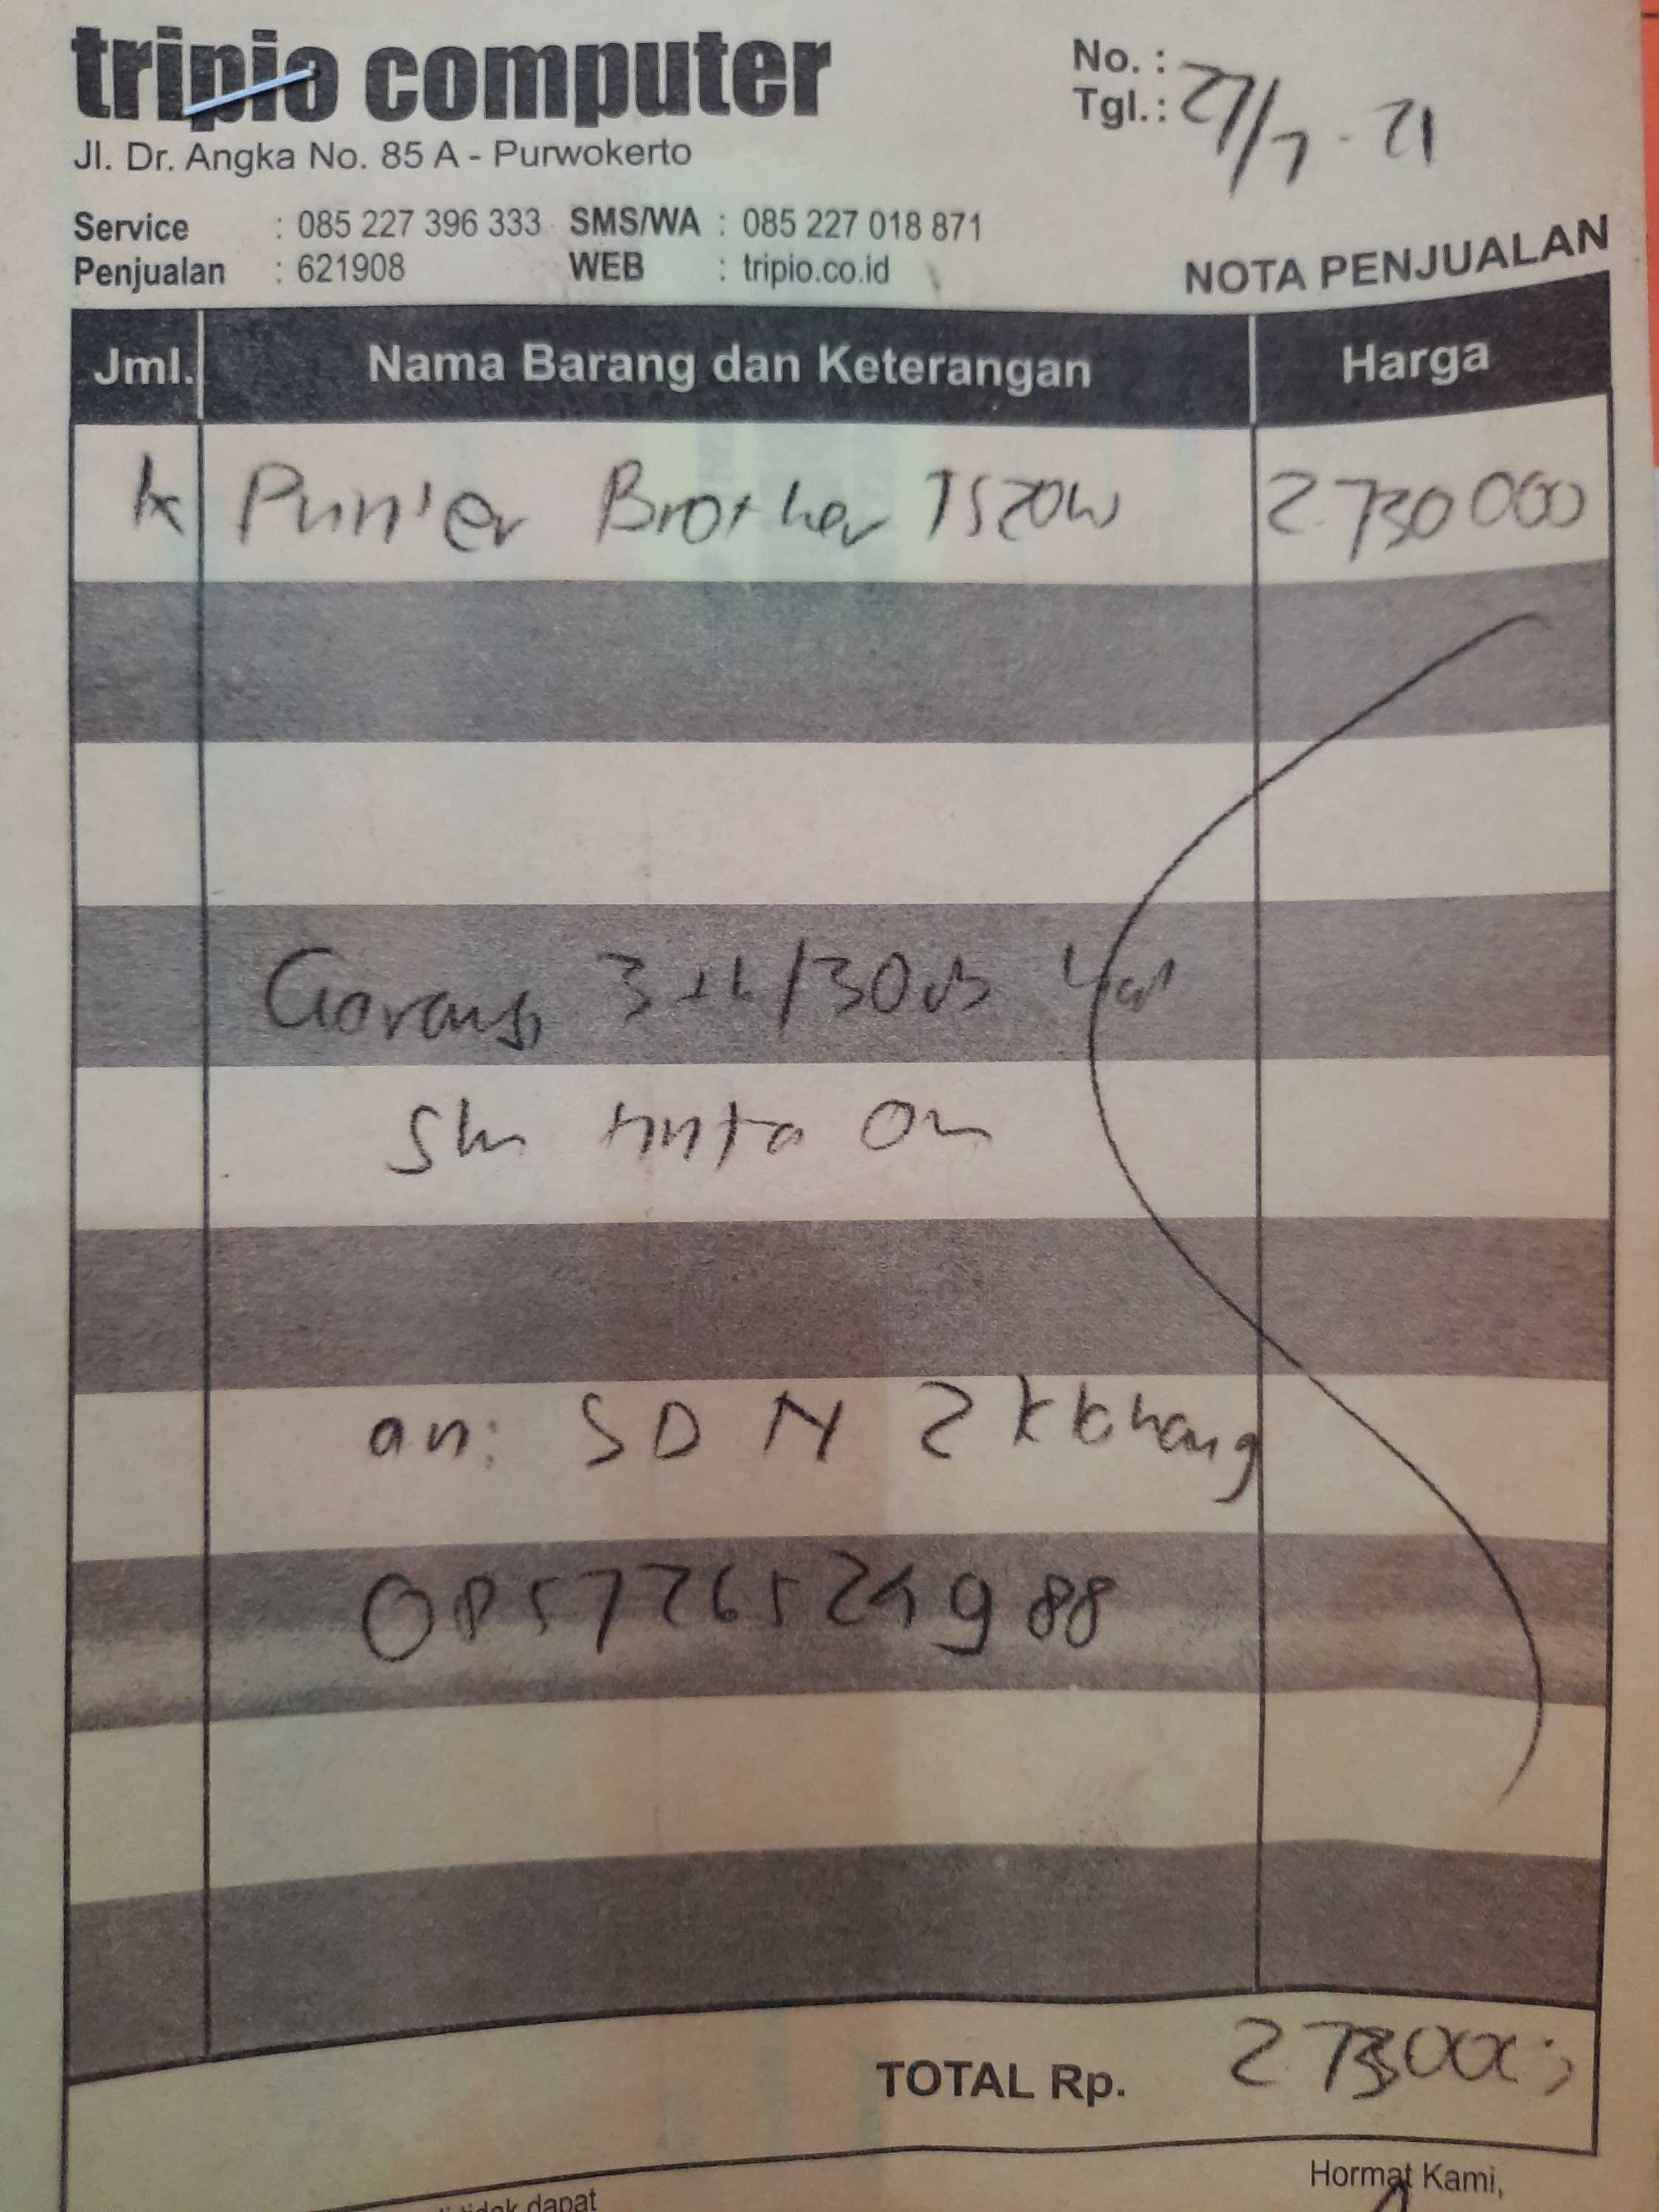 tripio computer
Jl. Dr. Angka No. 85 A - Purwokerto
No. :
Tgl. : 27/7 - 21
Service : 085 227 396 333 SMS/WA : 085 227 018 871
Penjualan : 621908 WEB : tripio.co.id
NOTA PENJUALAN
Jml. Nama Barang dan Keterangan Harga
Printer Brother T520W 2.730 000
Garansi 3 th/30
tinta
an: SDN 2
TOTAL Rp. 2.730000
Hormat Kami,
tidak dapat